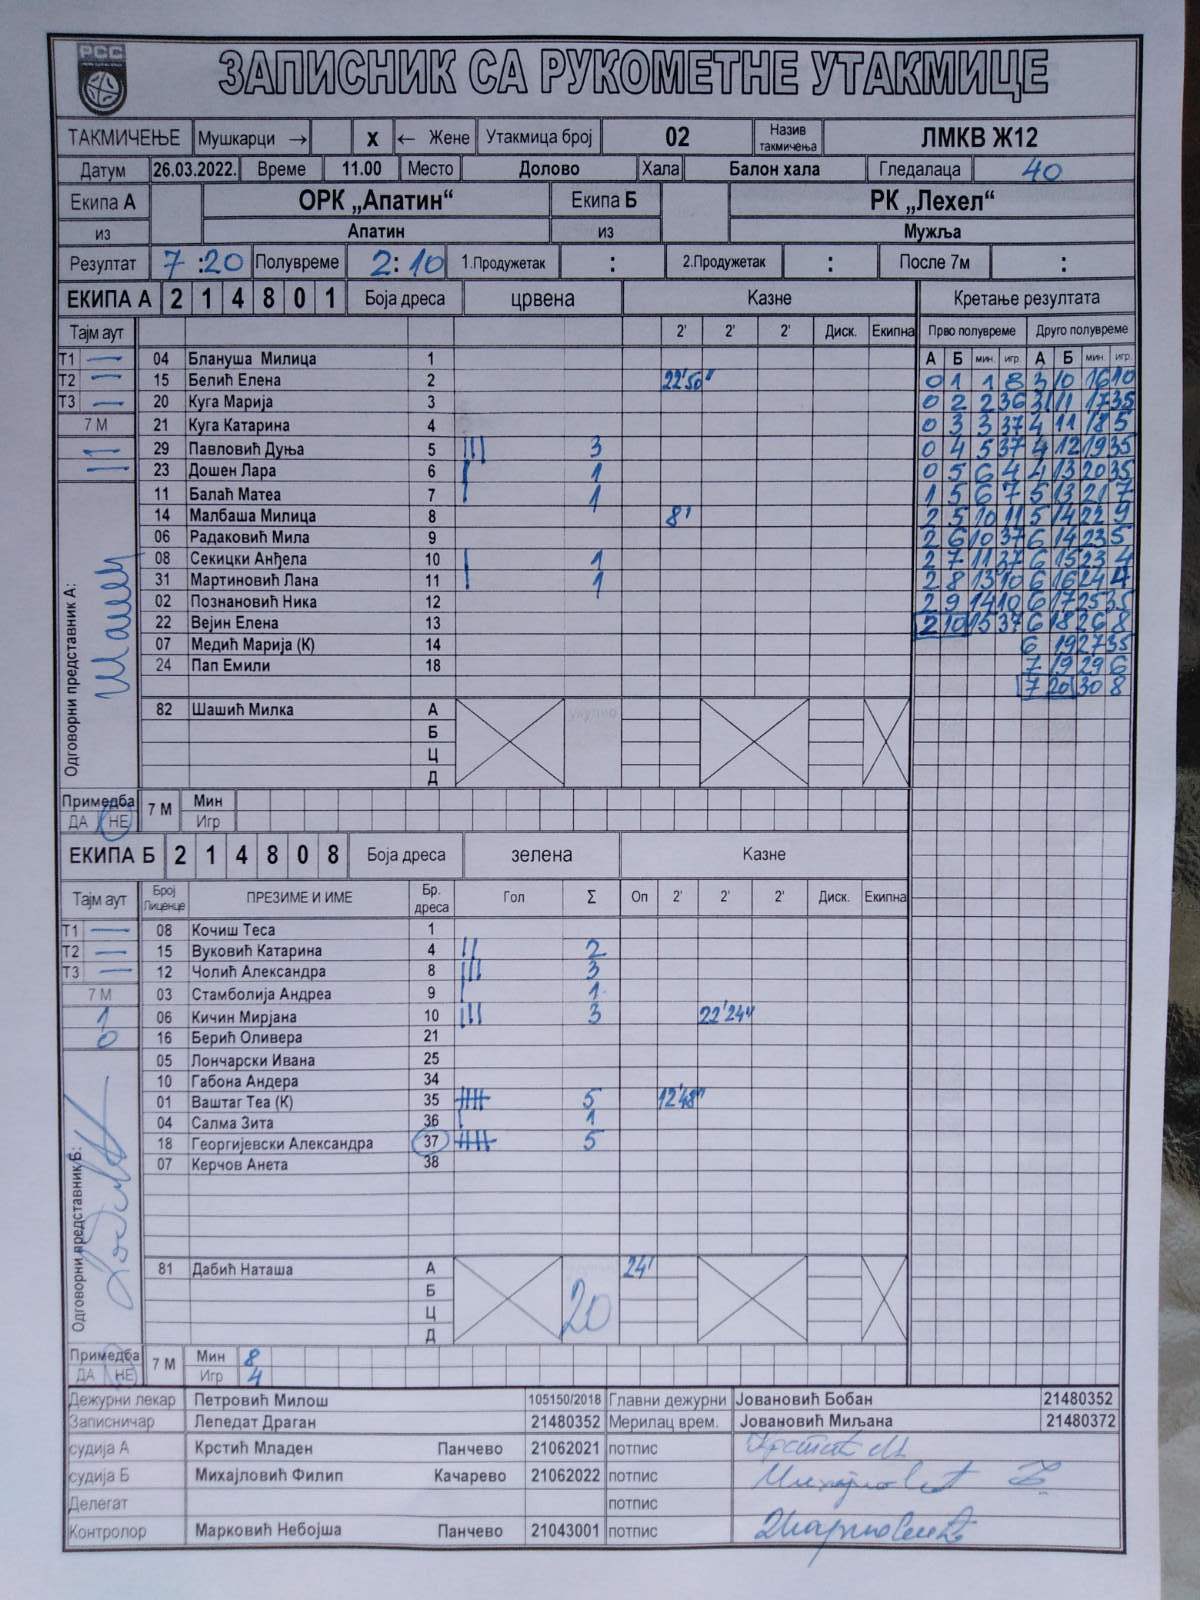 РСС
ЗАПИСНИК СА РУКОМЕТНЕ УТАКМИЦЕ
ТАКМИЧЕЊЕ Мушкарци → X ← Жене Утакмица број 02 Назив такмичења ЛМКВ Ж12
Датум 26.03.2022. Време 11.00 Место Долово Хала Балон хала Гледалаца 40
Екипа А ОРК „Апатин“ Екипа Б РК „Лехел“
из Апатин из Мужља
Резултат 7 : 20 Полувреме 2 : 10 1.Продужетак : 2.Продужетак : После 7м :
ЕКИПА А 2 1 4 8 0 1 Боја дреса црвена Казне Кретање резултата
Тајм аут 2' 2' 2' Диск. Екипна Прво полувреме Друго полувреме
Т1 — 04 Блануша Милица 1 А Б мин. игр. А Б мин. игр.
Т2 — 15 Белић Елена 2 22'50" 0 1 1 8 3 10 16 10
Т3 — 20 Куга Марија 3 0 2 2 36 3 11 17 35
7 М 21 Куга Катарина 4 0 3 3 37 4 11 18 5
29 Павловић Дуња 5 III 3 0 4 5 37 4 12 19 35
23 Дошен Лара 6 I 1 0 5 6 4 4 13 20 35
11 Балаћ Матеа 7 I 1 1 5 6 7 5 13 21 7
14 Малбаша Милица 8 8' 2 5 10 11 5 14 22 9
06 Радаковић Мила 9 2 6 10 37 6 14 23 5
08 Секицки Анђела 10 I 1 2 7 11 37 6 15 23 4
31 Мартиновић Лана 11 I 1 2 8 13 10 6 16 24 4
02 Познановић Ника 12 2 9 14 10 6 17 25 35
22 Вејин Елена 13 2 10 15 37 6 18 26 8
07 Медић Марија (К) 14 6 19 27 35
24 Пап Емили 18 7 19 29 6
7 20 30 8
Одговорни представник А:
82 Шашић Милка А
Б
Ц
Д
Примедба 7 М Мин
ДА НЕ Игр
ЕКИПА Б 2 1 4 8 0 8 Боја дреса зелена Казне
Тајм аут Број Лиценце ПРЕЗИМЕ И ИМЕ Бр. дреса Гол Σ Оп 2' 2' 2' Диск. Екипна
Т1 — 08 Кочиш Теса 1
Т2 — 15 Вуковић Катарина 4 II 2
Т3 — 12 Чолић Александра 8 III 3
7 М 03 Стамболија Андреа 9 I 1
1 06 Кичин Мирјана 10 III 3 22'24"
0 16 Берић Оливера 21
05 Лончарски Ивана 25
10 Габона Андера 34
01 Ваштаг Теа (К) 35 IIII 5 12'48"
04 Салма Зита 36 I 1
18 Георгијевски Александра 37 IIII 5
07 Керчов Анета 38
Одговорни представник Б:
81 Дабић Наташа А 24'
Б
Ц 20
Д
Примедба 7 М Мин 8
ДА НЕ Игр 4
Дежурни лекар Петровић Милош 105150/2018 Главни дежурни Јовановић Бобан 21480352
Записничар Лепедат Драган 21480352 Мерилац врем. Јовановић Миљана 21480372
судија А Крстић Младен Панчево 21062021 потпис
судија Б Михајловић Филип Качарево 21062022 потпис
Делегат потпис
Контролор Марковић Небојша Панчево 21043001 потпис